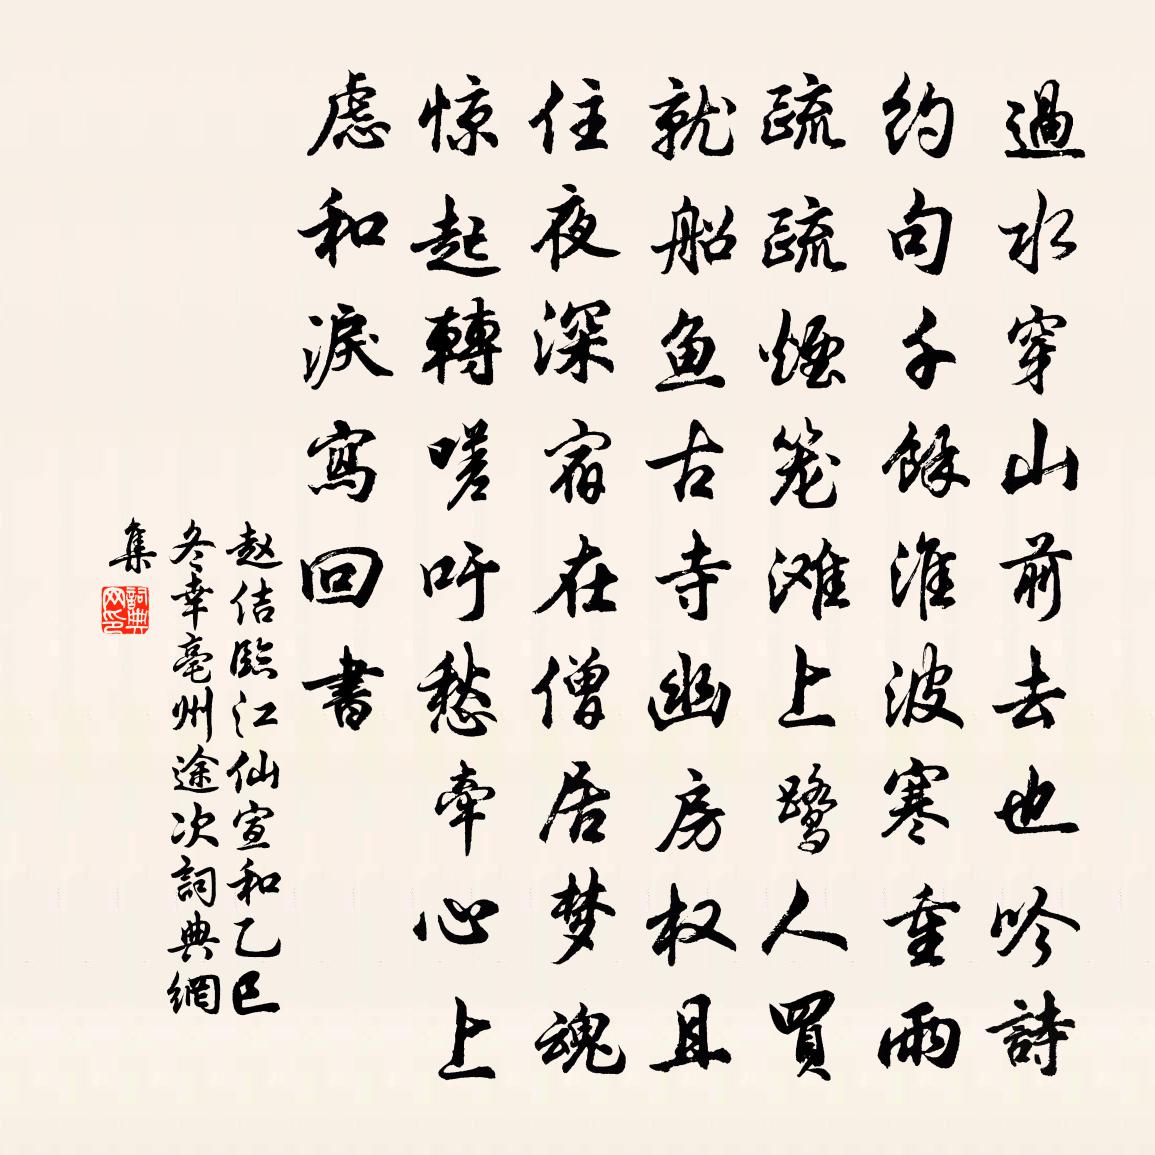 過水穿山前去也吟詩
約句千餘淮波寒重雨
疏疏煙笼滩上鹭人買
就船魚古寺幽房权且
住夜深宿在僧居梦魂
惊起轉嗟吁愁牽心上
慮和淚寫回書
赵佶臨江仙宣和乙巳
冬幸亳州途次詞典網
集
詞典网印